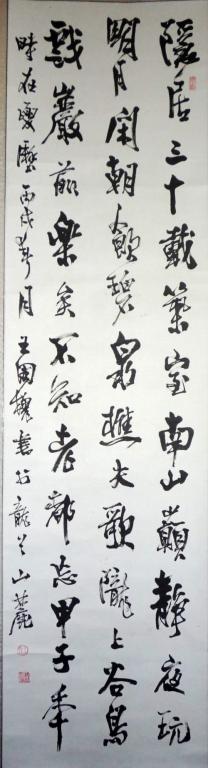 隱居三十載築室南山巔靜夜玩
明月閑朝飲碧泉樵夫歌隴上谷鳥
戲巖前樂矣不知老都忘甲子年
時在夏曆丙戌年月 書於龍山麓